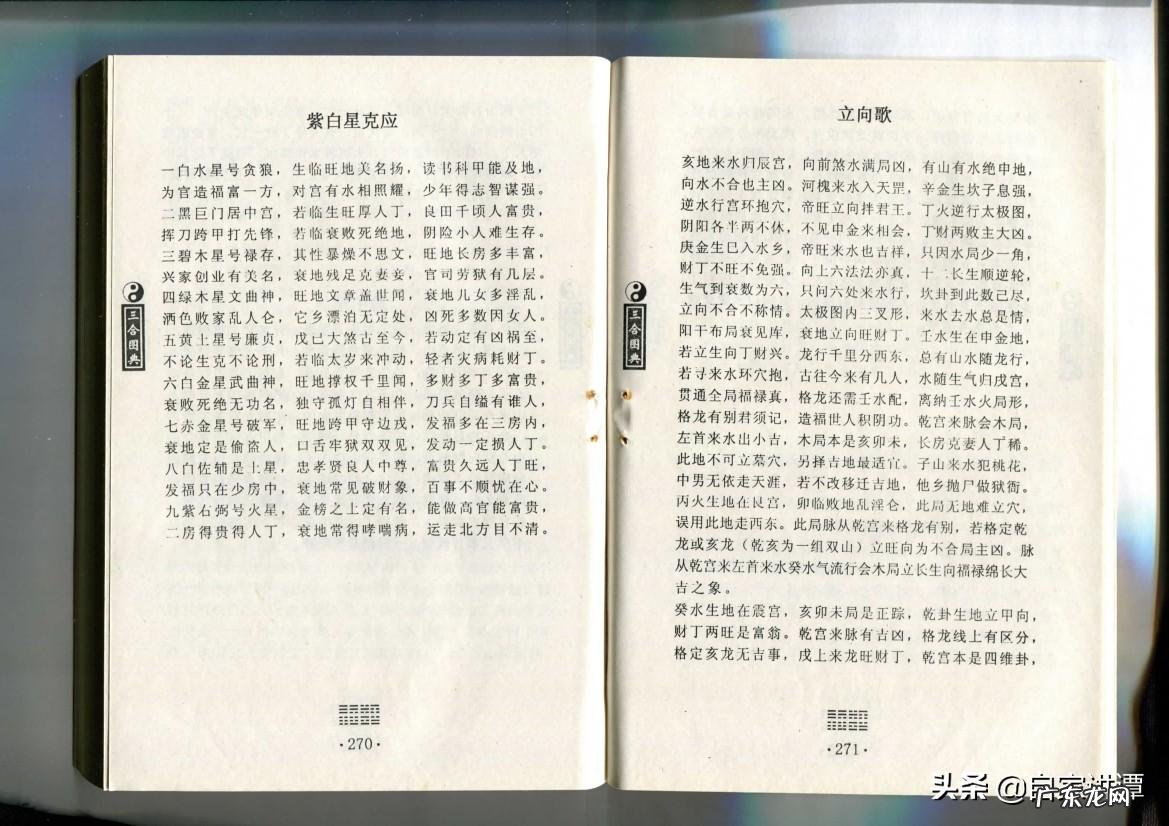 紫白星克应
一白水星号贪狼，生临旺地美名扬，读书科甲能及地，
为官造福富一方，对宫有水相照耀，少年得志智谋强。
二黑巨门居中宫，若临生旺厚人丁，良田千顷人富贵，
挥刀跨甲打先锋，若临衰败死绝地，阴险小人难生存。
三碧木星号禄存，其性暴燥不思文，旺地长房多丰富，
兴家创业有美名，衰地残足克妻妾，官司劳狱有几层。
四绿木星文曲神，旺地文章盖世闻，衰地儿女多淫乱，
洒色败家乱人仑，它乡漂泊无定处，凶死多数因女人。
五黄土星号廉贞，戊己大煞古至今，若动定有凶祸至，
不论生克不论刑，若临太岁来冲动，轻者灾病耗财丁。
六白金星武曲神，旺地撑权千里闻，多财多丁多富贵，
衰败死绝无功名，独守孤灯自相伴，刀兵自缢有谁人，
七赤金星号破军，旺地跨甲守边戎，发福多在三房内，
衰地定是偷盗人，口舌牢狱双双见，发动一定损人丁。
八白佐辅是土星，忠孝贤良人中尊，富贵久远人丁旺，
发福只在少房中，衰地常见破财象，百事不顺忧在心。
九紫石弼号火星，金榜之上定有名，能做高官能富贵，
二房得贵得人丁，衰地常得哮喘病，运走北方目不清。
三合图典
·270·
立向歌
亥地来水归辰宫，向前煞水满局凶，有山有水绝申地，
向水不合也主凶。河槐来水入天罡，辛金生坎子息强，
逆水行宫环抱穴，帝旺立向拌君王。丁火逆行太极图，
阴阳各半两不休，不见申金来相会，丁财两败主大凶。
庚金生巳入水乡，帝旺来水也吉祥，只因水局少一角，
财丁不旺不免强。向上六法法亦真，十二长生顺逆轮，
生气到衰数为六，只问六处来水行，坎卦到此数己尽，
立向不合不称情。太极图内三叉形，来水去水总是情，
阳干布局衰见库，衰地立向旺财丁。壬水生在申金地，
若立生向丁财兴。龙行千里分西东，总有山水随龙行，
若寻来水环穴抱，古往今来有几人，水随生气归戌宫，
贯通全局福禄真，格龙还需壬水配，离纳壬水火局形，
格龙有别君须记，造福世人积阴功。乾宫来脉会木局，
左首来水出小吉，木局本是亥卯未，长房克妻人丁稀。
此地不可立墓穴，另择吉地最适宜。子山来水犯桃花，
中男无依走天涯，若不改移迁吉地，他乡抛尸做狱衙。
丙火生地在艮宫，卯临败地乱淫仑，此局无地难立穴，
误用此地走西东。此局脉从乾宫来格龙有别，若格定乾
龙或亥龙（乾亥为一组双山）立旺向为不合局主凶。脉
从乾宫来左首来水癸水气流行会木局立长生向福禄绵长大
吉之象。
癸水生地在震宫，亥卯未局是正踪，乾卦生地立甲向，
财丁两旺是富翁。乾宫来脉有吉凶，格龙线上有区分，
格定亥龙无吉事，戊上来龙旺财丁，乾宫本是四维卦，
三合图典
·271·
头条